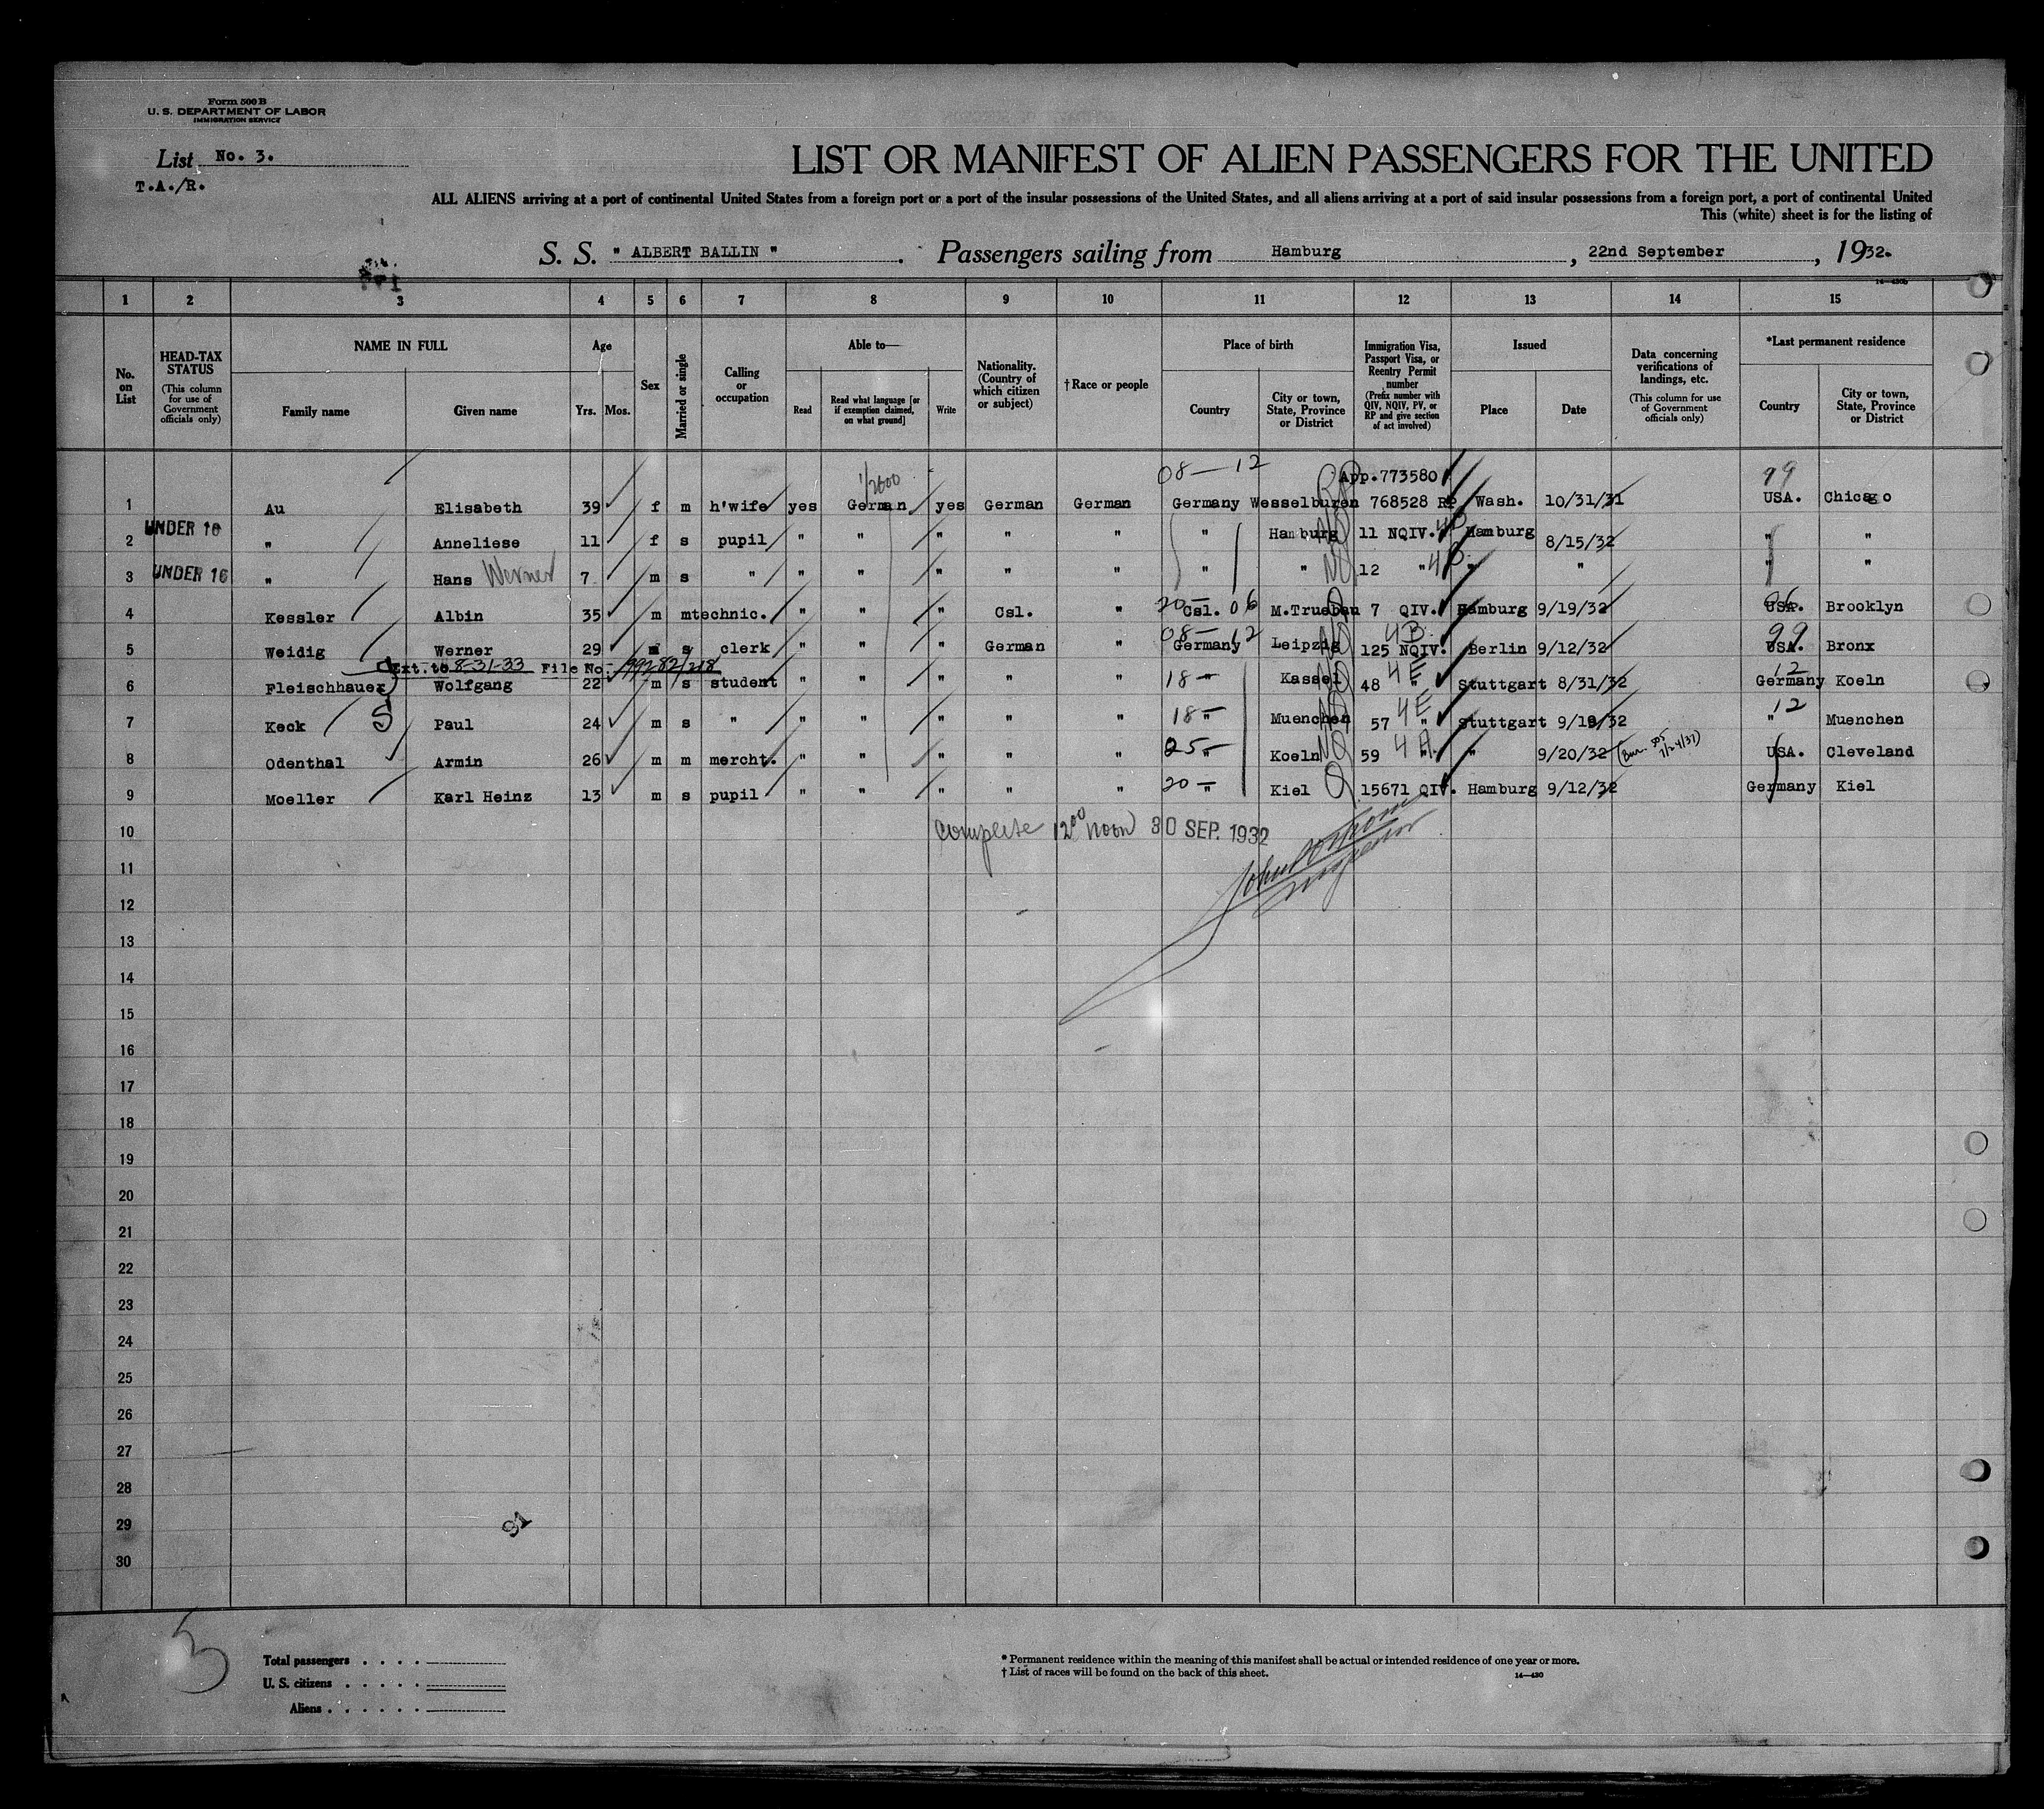 Form 500 B
U. S. DEPARTMENT OF LABOR
IMMIGRATION SERVICE
List No. 3.
T.A./R.
LIST OR MANIFEST OF ALIEN PASSENGERS FOR THE UNITED
ALL ALIENS arriving at a port of continental United States from a foreign port or a port of the insular possessions of the United States, and all aliens arriving at a port of said insular possessions from a foreign port, a port of continental United
This (white) sheet is for the listing of
S. S. " ALBERT BALLIN " . Passengers sailing from Hamburg , 22nd September , 1932.
14—430b
1 2 3 4 5 6 7 8 9 10 11 12 13 14 15
No. on List
HEAD-TAX STATUS (This column for use of Government officials only)
NAME IN FULL
Family name Given name
Age
Yrs. Mos.
Sex
Married or single
Calling or occupation
Able to—
Read Read what language [or if exemption claimed, on what ground] Write
Nationality. (Country of which citizen or subject)
†Race or people
Place of birth
Country City or town, State, Province or District
Immigration Visa, Passport Visa, or Reentry Permit number (Prefix number with QIV, NQIV, PV, or RP and give section of act involved)
Issued
Place Date
Data concerning verifications of landings, etc. (This column for use of Government officials only)
*Last permanent residence
Country City or town, State, Province or District
08 — 12 App.773580 99
1 Au Elisabeth 39 f m h'wife yes German yes German German Germany Wesselburen 768528 RP Wash. 10/31/31 USA. Chicago
UNDER 16
2 " Anneliese 11 f s pupil " " " " " " Hamburg 11 NQIV. 4D Hamburg 8/15/32 " "
3 UNDER 16 " Hans Werner 7 m s " " " " " " " " NQ 12 " 4D " " " "
4 Kessler Albin 35 m m technic. " " " Csl. " 20— Csl. 06 M.Truebau Q 7 QIV. Hamburg 9/19/32 USA. Brooklyn
5 Weidig Werner 29 m s clerk " " " German " 08— Germany 12 Leipzig NQ 125 NQIV. 4B Berlin 9/12/32 99 USA. Bronx
Ext. to 8-31-33 File No. 99282/218
6 Fleischhauer Wolfgang 22 m s student " " " " " 18— " Kassel NQ 48 4E " Stuttgart 8/31/32 12 Germany Koeln
7 Keck Paul 24 m s " " " " " " 18— " Muenchen 57 4E " Stuttgart 9/19/32 12 " Muenchen
8 Odenthal Armin 26 m m mercht. " " " " " 25— " Koeln NQ 59 4A " " 9/20/32 USA. Cleveland
9 Moeller Karl Heinz 13 m s pupil " " " " " 20— " Kiel Q 15671 QIV. Hamburg 9/12/32 Germany Kiel
10 complete 12⁰⁰ noon 30 SEP. 1932
11
Inspector
12
13
14
15
16
17
18
19
20
21
22
23
24
25
26
27
28
29
91
30
Total passengers . . . .
U. S. citizens . . . . .
Aliens . . . . . .
* Permanent residence within the meaning of this manifest shall be actual or intended residence of one year or more.
† List of races will be found on the back of this sheet.
14—430